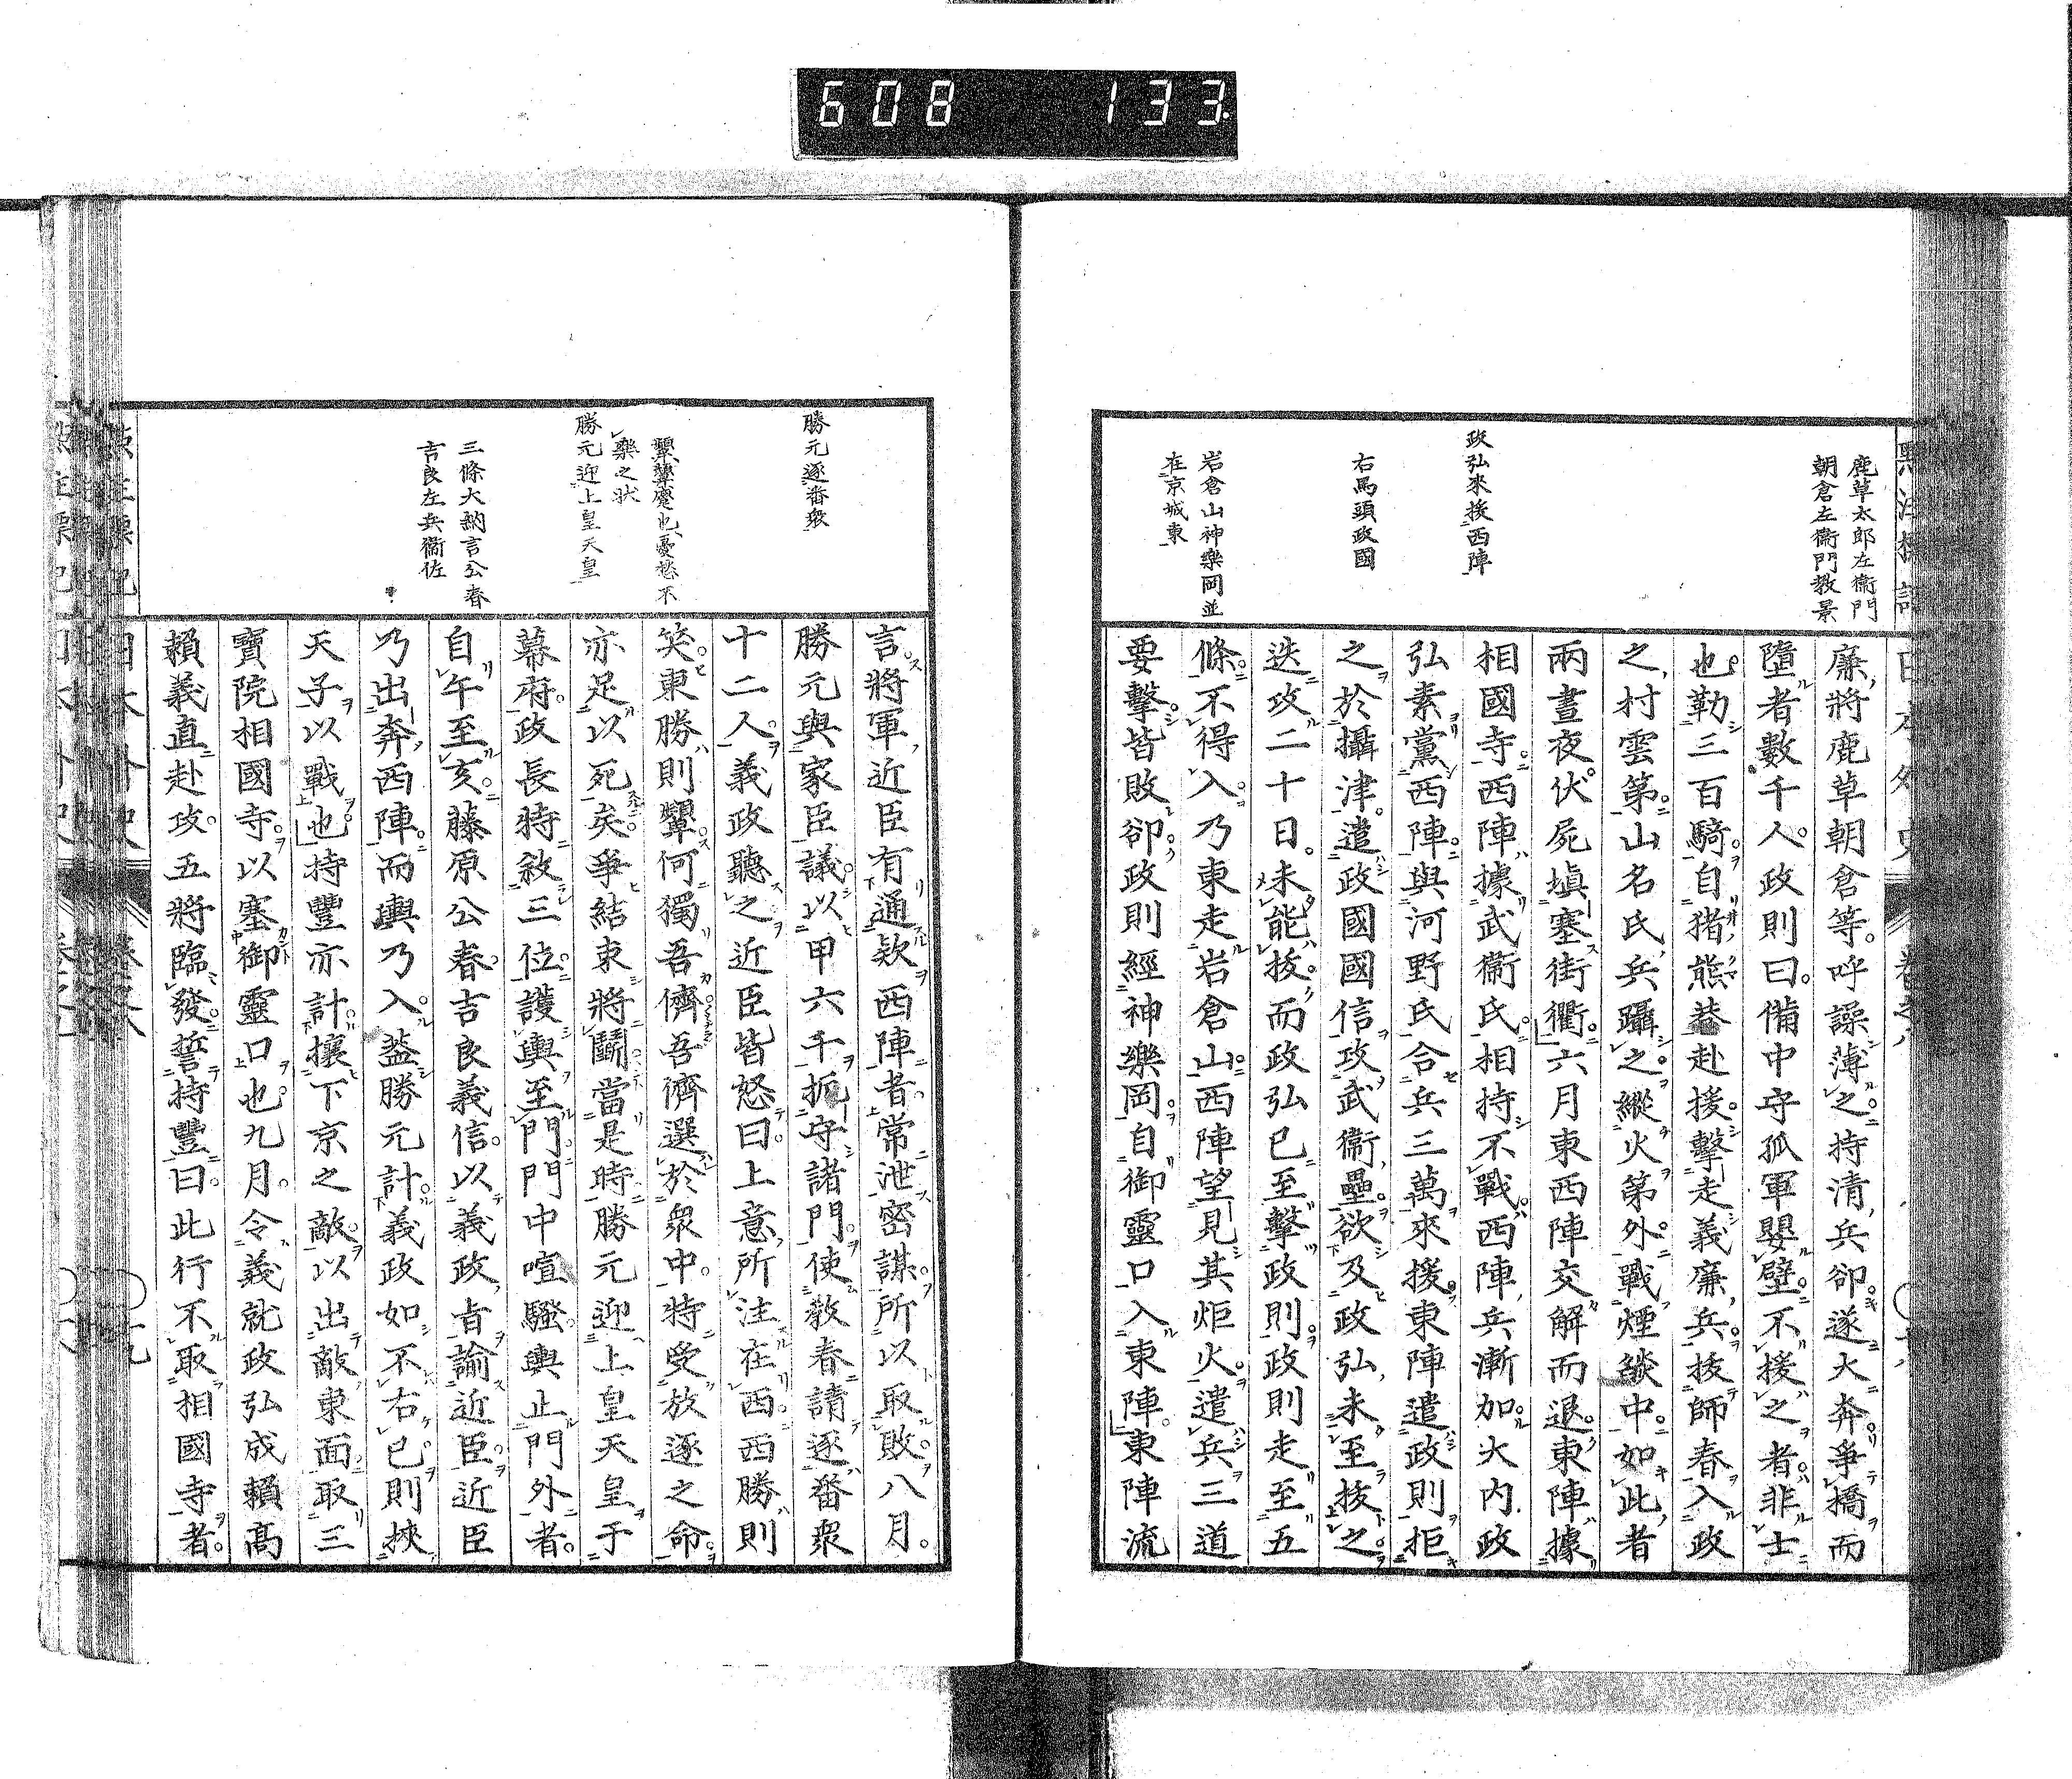 608 133
鹿草太郎左衞門
朝倉左衞門敎景
政弘來援西陣
右馬頭政國
岩倉山神樂岡並
在京城東
廉將鹿草朝倉等呼譟薄之持淸兵卻遂大奔爭橋而
墮者數千人政則曰備中守孤軍嬰壁不援之者非士
也勒三百騎自猪熊巷赴援擊走義廉兵拔師春入政
之村雲第山名氏兵躡之縱火第外戰煙燄中如此者
兩晝夜伏屍塡塞街衢六月東西陣交解而退東陣據
相國寺西陣據武衞氏相持不戰西陣兵漸加大內政
弘素黨西陣與河野氏合兵三萬來援東陣遣政則拒
之於攝津遣政國國信攻武衞壘欲及政弘未至拔之
迭攻二十日未能拔而政弘已至擊政則政則走至五
條不得入乃東走岩倉山西陣望見其炬火遣兵三道
要擊皆敗卻政則經神樂岡自御靈口入東陣東陣流
勝元逐番衆
顰顰蹙也憂愁不
樂之狀
勝元迎上皇天皇
三條大納言公春
吉良左兵衞佐
言將軍近臣有通欵西陣者常泄密謀所以取敗八月
勝元與家臣議以甲六千扼守諸門使敎春請逐番衆
十二人義政聽之近臣皆怒曰上意所注在西西勝則
笑東勝則顰何獨吾儕吾儕選於衆中特受放逐之命
亦足以死矣爭結束將鬭當是時勝元迎上皇天皇于
幕府政長特敘三位護輿至門門中喧騷輿止門外者
自午至亥藤原公春吉良義信以義政旨諭近臣近臣
乃出奔西陣而輿乃入蓋勝元計義政如不右已則挾
天子以戰也持豐亦計攘下京之敵以出敵東面取三
寶院相國寺以塞御靈口也九月令義就政弘成賴高
賴義直赴攻五將臨發誓持豐曰此行不取相國寺者